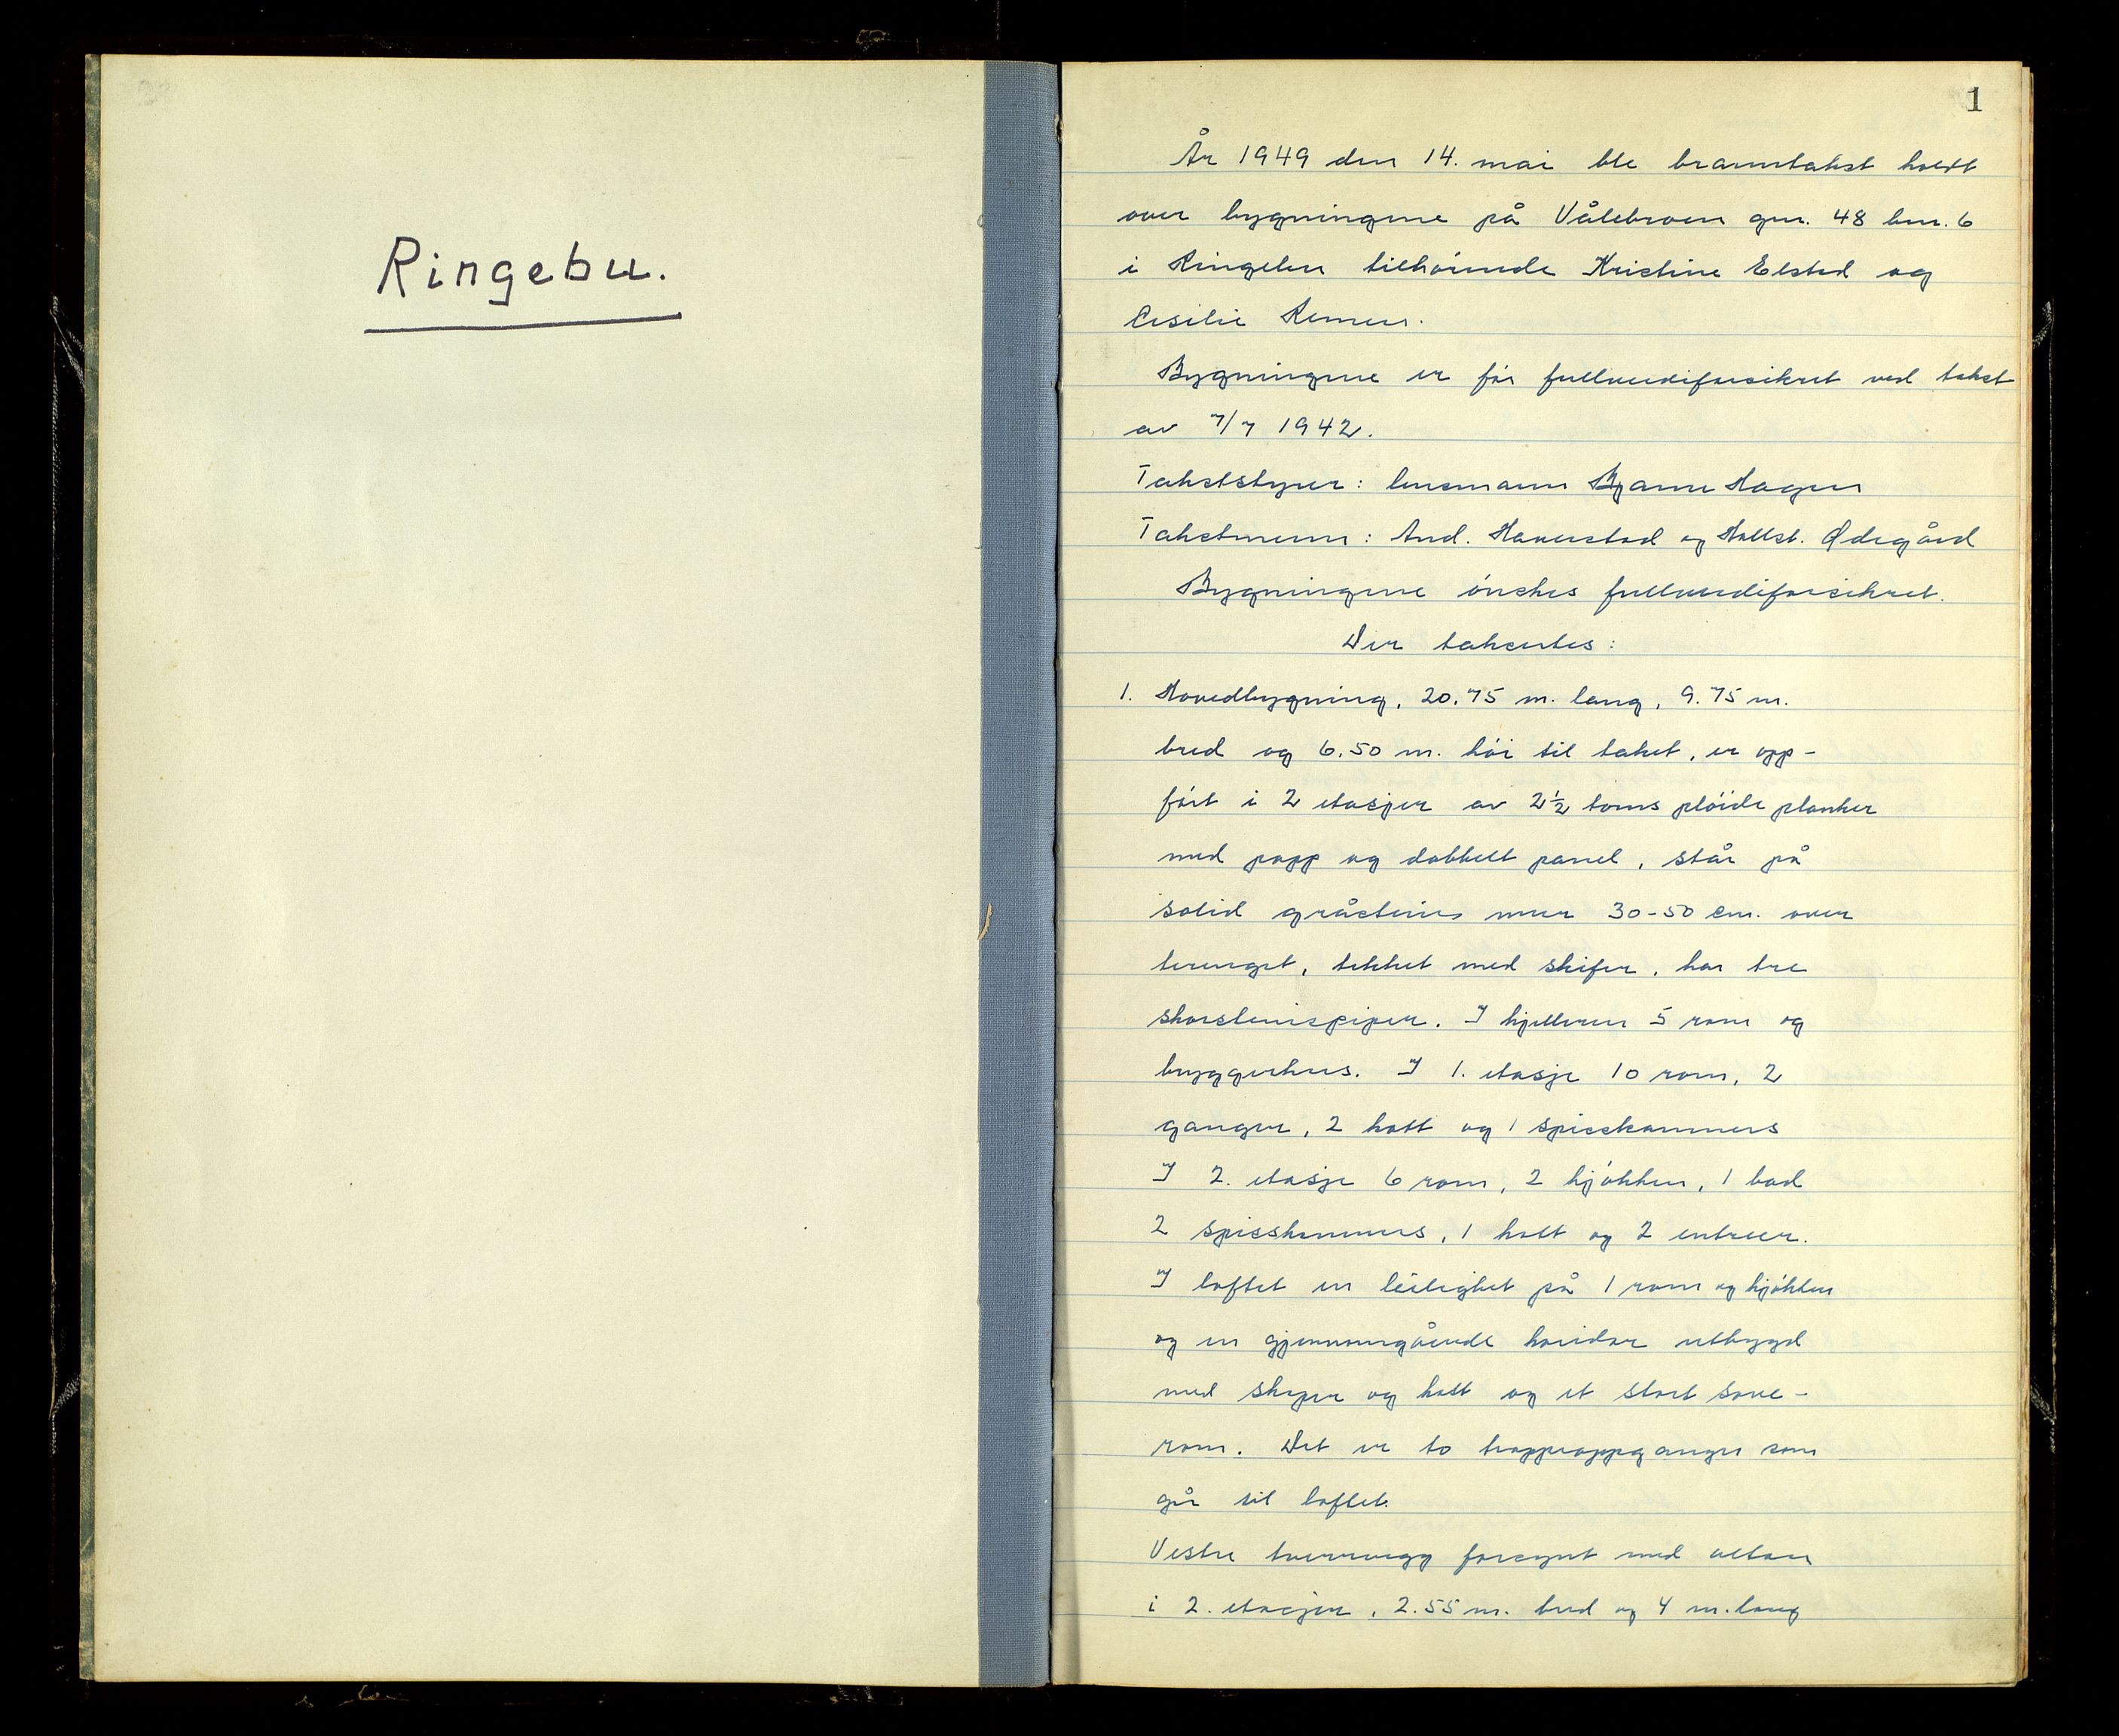 Ringebu.
1
År 1949 den 14. mai ble branntakst holdt
over bygningene på Vålebroen gnr. 48 bnr. 6
i Ringebu tilhørende Kristine Elstad og
Cesilie Remen.
Bygningene er før fullverdiforsikret ved takst
av 7/7 1942.
Takststyrer: lensmann Bjarne Hagen
Takstmenn: And. Haverstad og Hallst. Ødegård
Bygningene ønskes fullverdiforsikret.
Der taksertes:
1. Hovedbygning, 20.75 m. lang, 9.75 m.
bred og 6.50 m. høi til taket, er opp-
ført i 2 etasjer av 2½ toms pløide planker
med papp og dobbelt panel, står på
solid gråsteins mur 30-50 cm. over
terenget, tekket med skifer, har tre
skorsteinspiper. I kjelleren 5 rom og
bryggerhus. I 1. etasje 10 rom, 2
ganger, 2 kott og 1 spiseskammers
I 2. etasje 6 rom, 2 kjøkken, 1 bad
2 spisskammers, 1 kott og 2 entreer.
I loftet en leilighet på 1 rom og kjøkken
og en gjennomgående koridor utbygd
med skaper og kott og et stort sove-
rom. Det er to trappeoppganger som
går til loftet.
Vestre tverrvegg forsynt med altan
i 2. etasjen, 2.55 m. bred og 4 m. lang